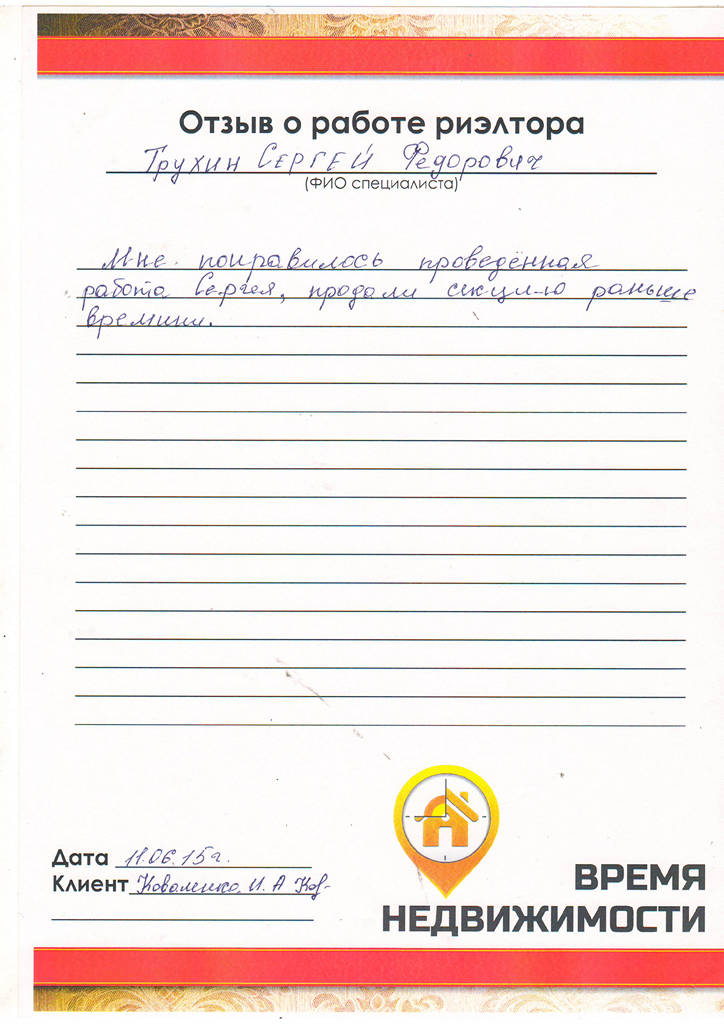 Отзыв о работе риэлтора
Трухин Сергей Федорович
(ФИО специалиста)
Мне понравилось проведённая
работа Сергея, продали секцию раньше
времини.
Дата 11.06.15г.
Клиент Коваленко И. А Ков-
ВРЕМЯ
НЕДВИЖИМОСТИ